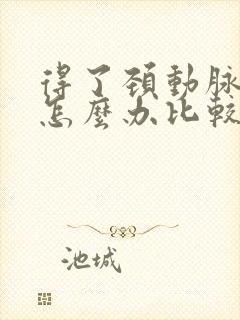 得了頚動脉
怎麼办比較
池城